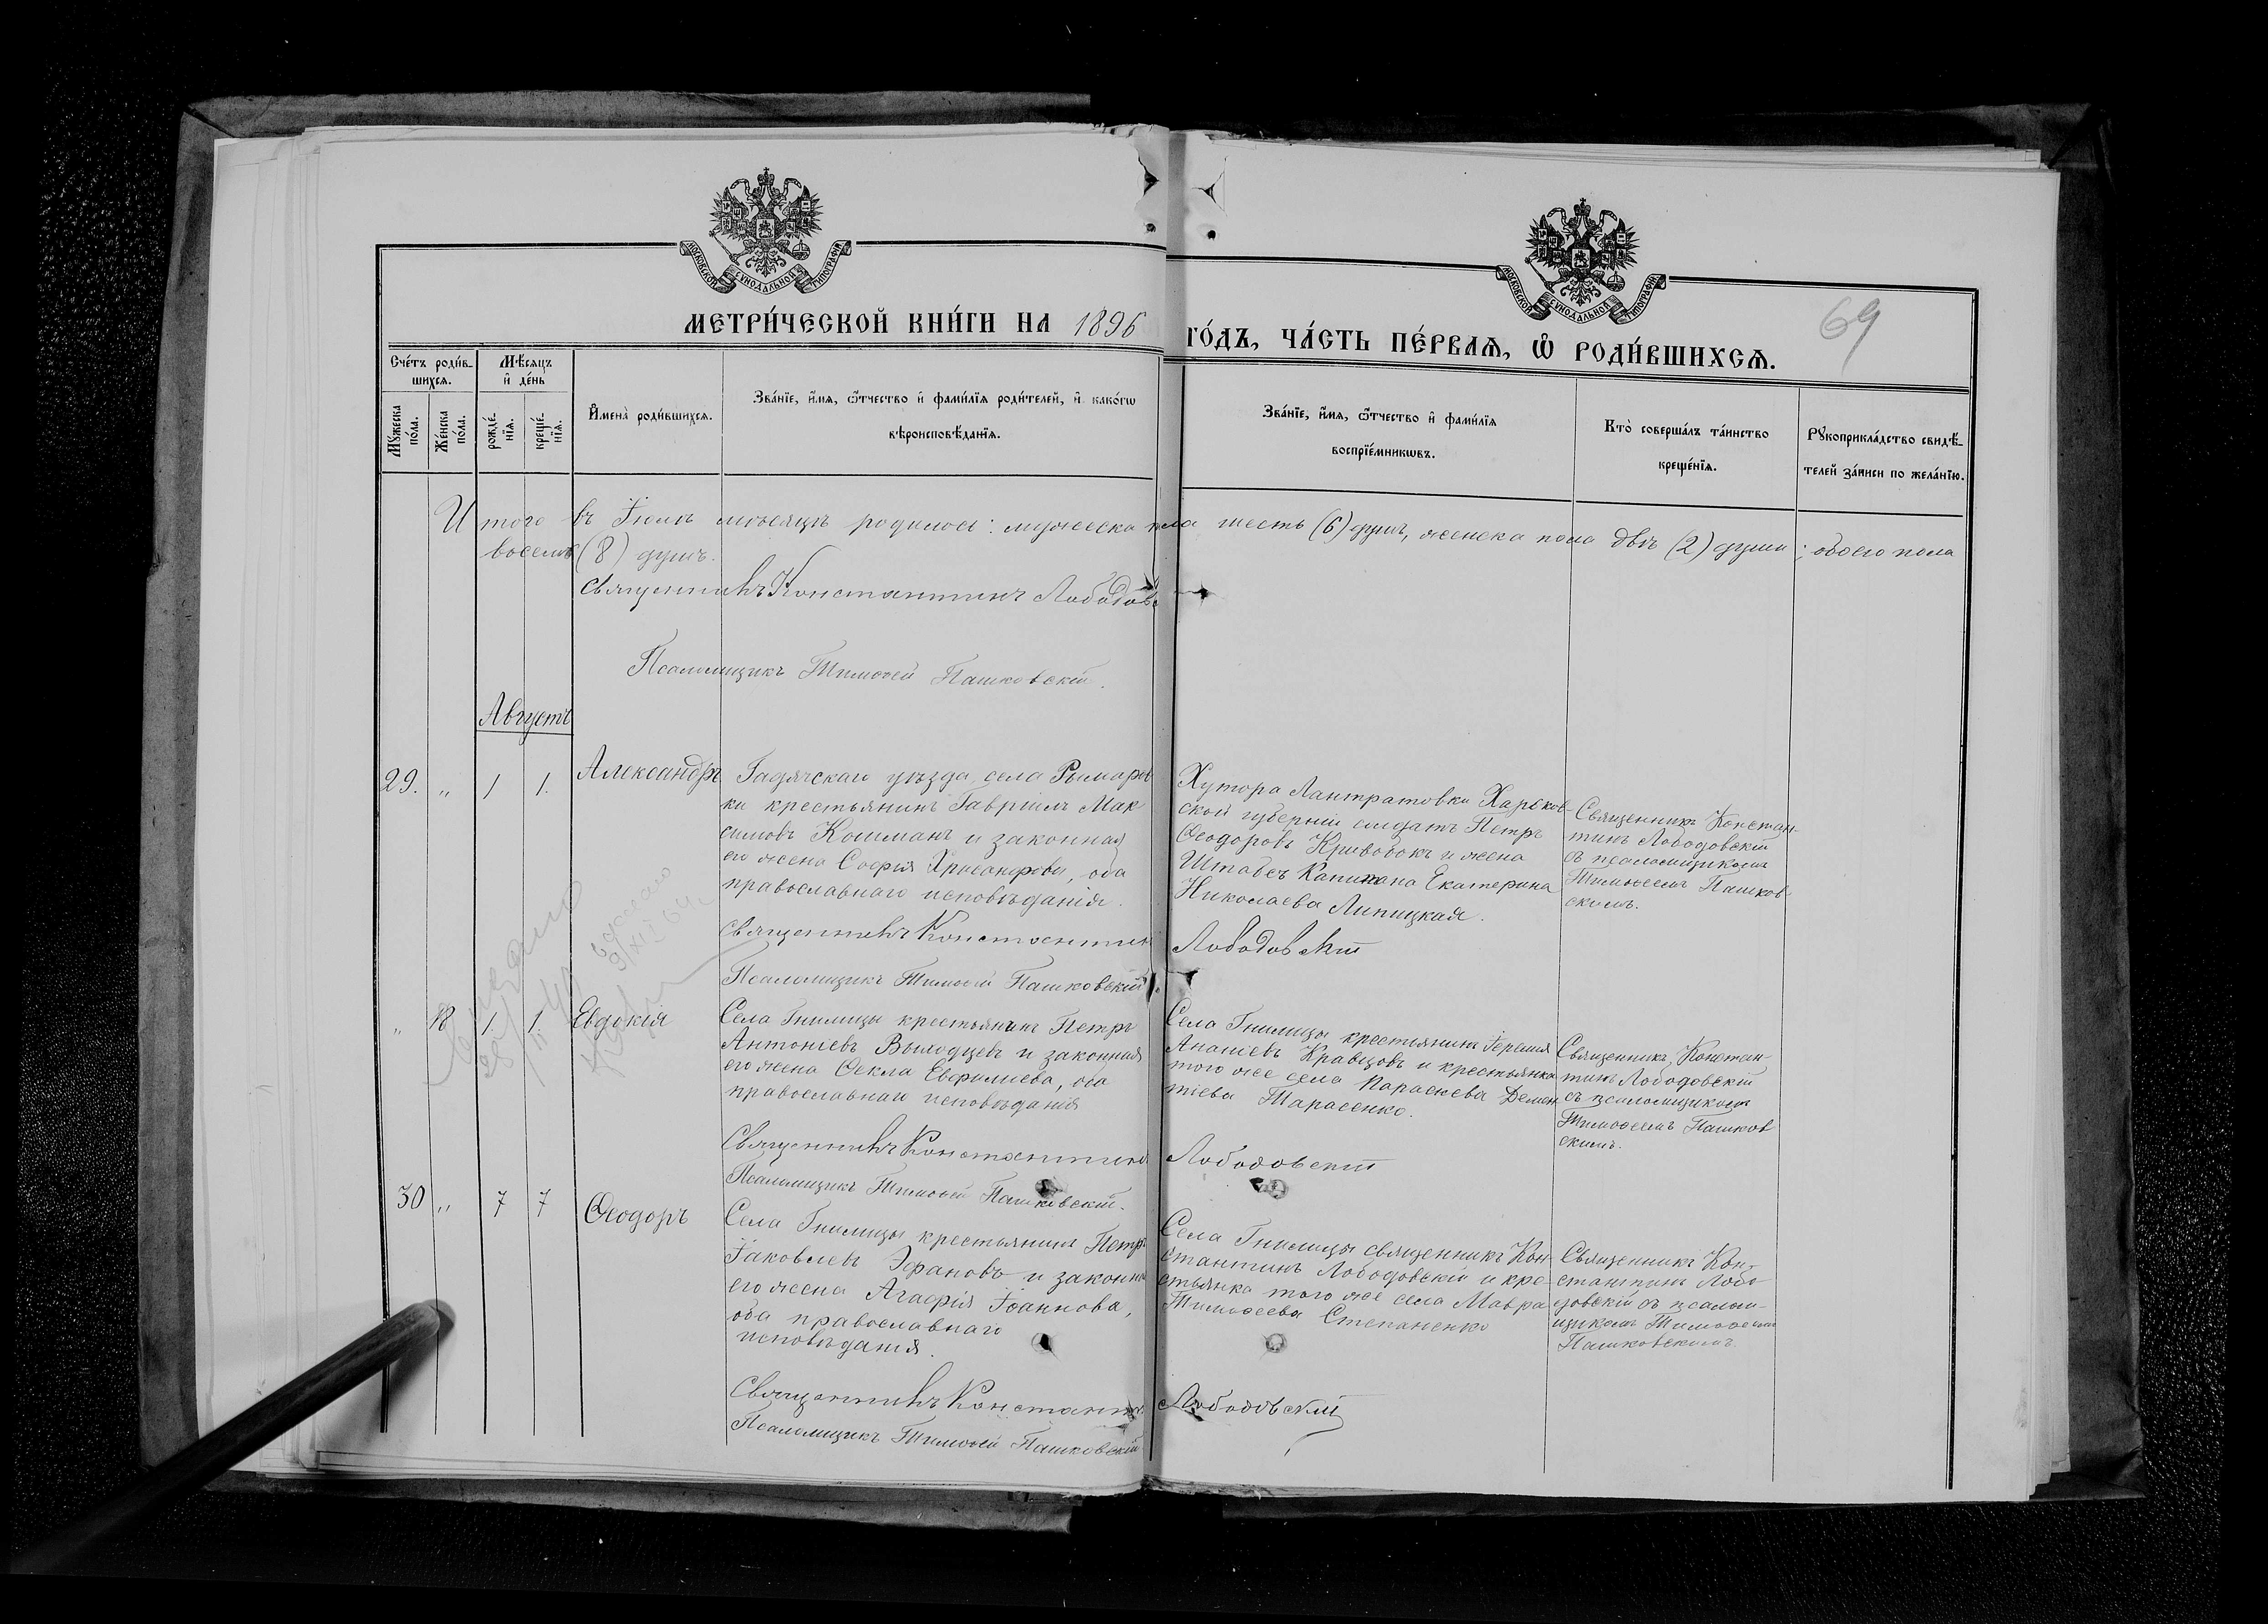 МОСКОВСКОЙ СѴНОДАЛЬНОЙ ТИПОГРАФІИ
МОСКОВСКОЙ СѴНОДАЛЬНОЙ ТИПОГРАФІИ
69
МЕТРИ́ЧЕСКОЙ КНИ́ГИ НА 1896 ГО́ДЪ, ЧА́СТЬ ПЕ́РВАѦ, Ѡ҆ РОДИ́ВШИХСѦ.
Сче́тъ роди́в-
шихсѧ.
Мѣ́сѧцъ
и҆ де́нь
Мꙋ́жеска
по́ла.
Же́нска
по́ла.
рожде́-
нїѧ.
креще́-
нїѧ.
И҆мена̀ роди́вшихсѧ.
Зва́нїе, и҆́мѧ, ѻ҆́тчество и҆ фами́лїѧ роди́телей, и҆ како́гѡ
вѣроисповѣ́данїѧ.
Зва́нїе, и҆́мѧ, ѻ҆́тчество и҆ фами́лїѧ
воспрїе́мникѡвъ.
Кто̀ соверша́лъ та́инство
креще́нїѧ.
Рꙋкоприкла́дство свидѣ́-
телей за́писи по жела́нїю.
Итого въ Іюлѣ мѣсяцѣ родилось: мужеска пола шесть (6) душъ, женска пола двѣ (2) души; обоего пола
восемь (8) душъ.
Священникъ Константинъ Лободовс
Псаломщикъ Тимоѳей Пашковскій.
Августъ
29. „ 1 1. Александръ
Гадячскаго уѣзда, села Рымаров
ки крестьянинъ Гавріилъ Мак
симовъ Кошманъ и законная
его жена Софія Хрисанфова, оба
православнаго исповѣданія.
Хутора Лантратовки Харьков-
ской губерніи солдатъ Петръ
Ѳеодоровъ Кривобокъ и жена
Штабсъ Капитана Екатерина
Николаева Липицкая.
Священникъ Констан-
тинъ Лободовскій
съ псаломщикомъ
Тимоѳеемъ Пашков-
скимъ.
Священникъ Константинъ Лободовскій
Псаломщикъ Тимоѳей Пашковскій.
„ 18 1. 1. Евдокія
Села Гнилицы крестьянинъ Петръ
Антоніевъ Выходцевъ и законная
его жена Ѳекла Евфиміева, оба
православнаго исповѣданія
Села Гнилицы крестьянинъ Іеремія
Ананіевъ Кравцовъ и крестьянка
того же села Параскева Демен
тіева Тарасенко.
Священникъ Констан-
тинъ Лободовскій
съ псаломщикомъ
Тимоѳеемъ Пашков
скимъ.
Священникъ Константинъ Лободовскій
Псаломщикъ Тимоѳей Пашковскій.
30 „ 7 7 Ѳеодоръ
Села Гнилицы крестьянинъ Петръ
Іаковлевъ Эфановъ и законная
его жена Агафія Іоаннова,
оба православнаго
исповѣданія.
Села Гнилицы священникъ Кон-
стантинъ Лободовскій и кре-
стьянка того же села Мавра
Тимоѳеева Степаненко
Священникъ Кон-
стантинъ Лобо-
довскій съ псалом-
щикомъ Тимоѳеемъ
Пашковскимъ.
Священникъ Константинъ Лободовскій
Псаломщикъ Тимоѳей Пашковскій